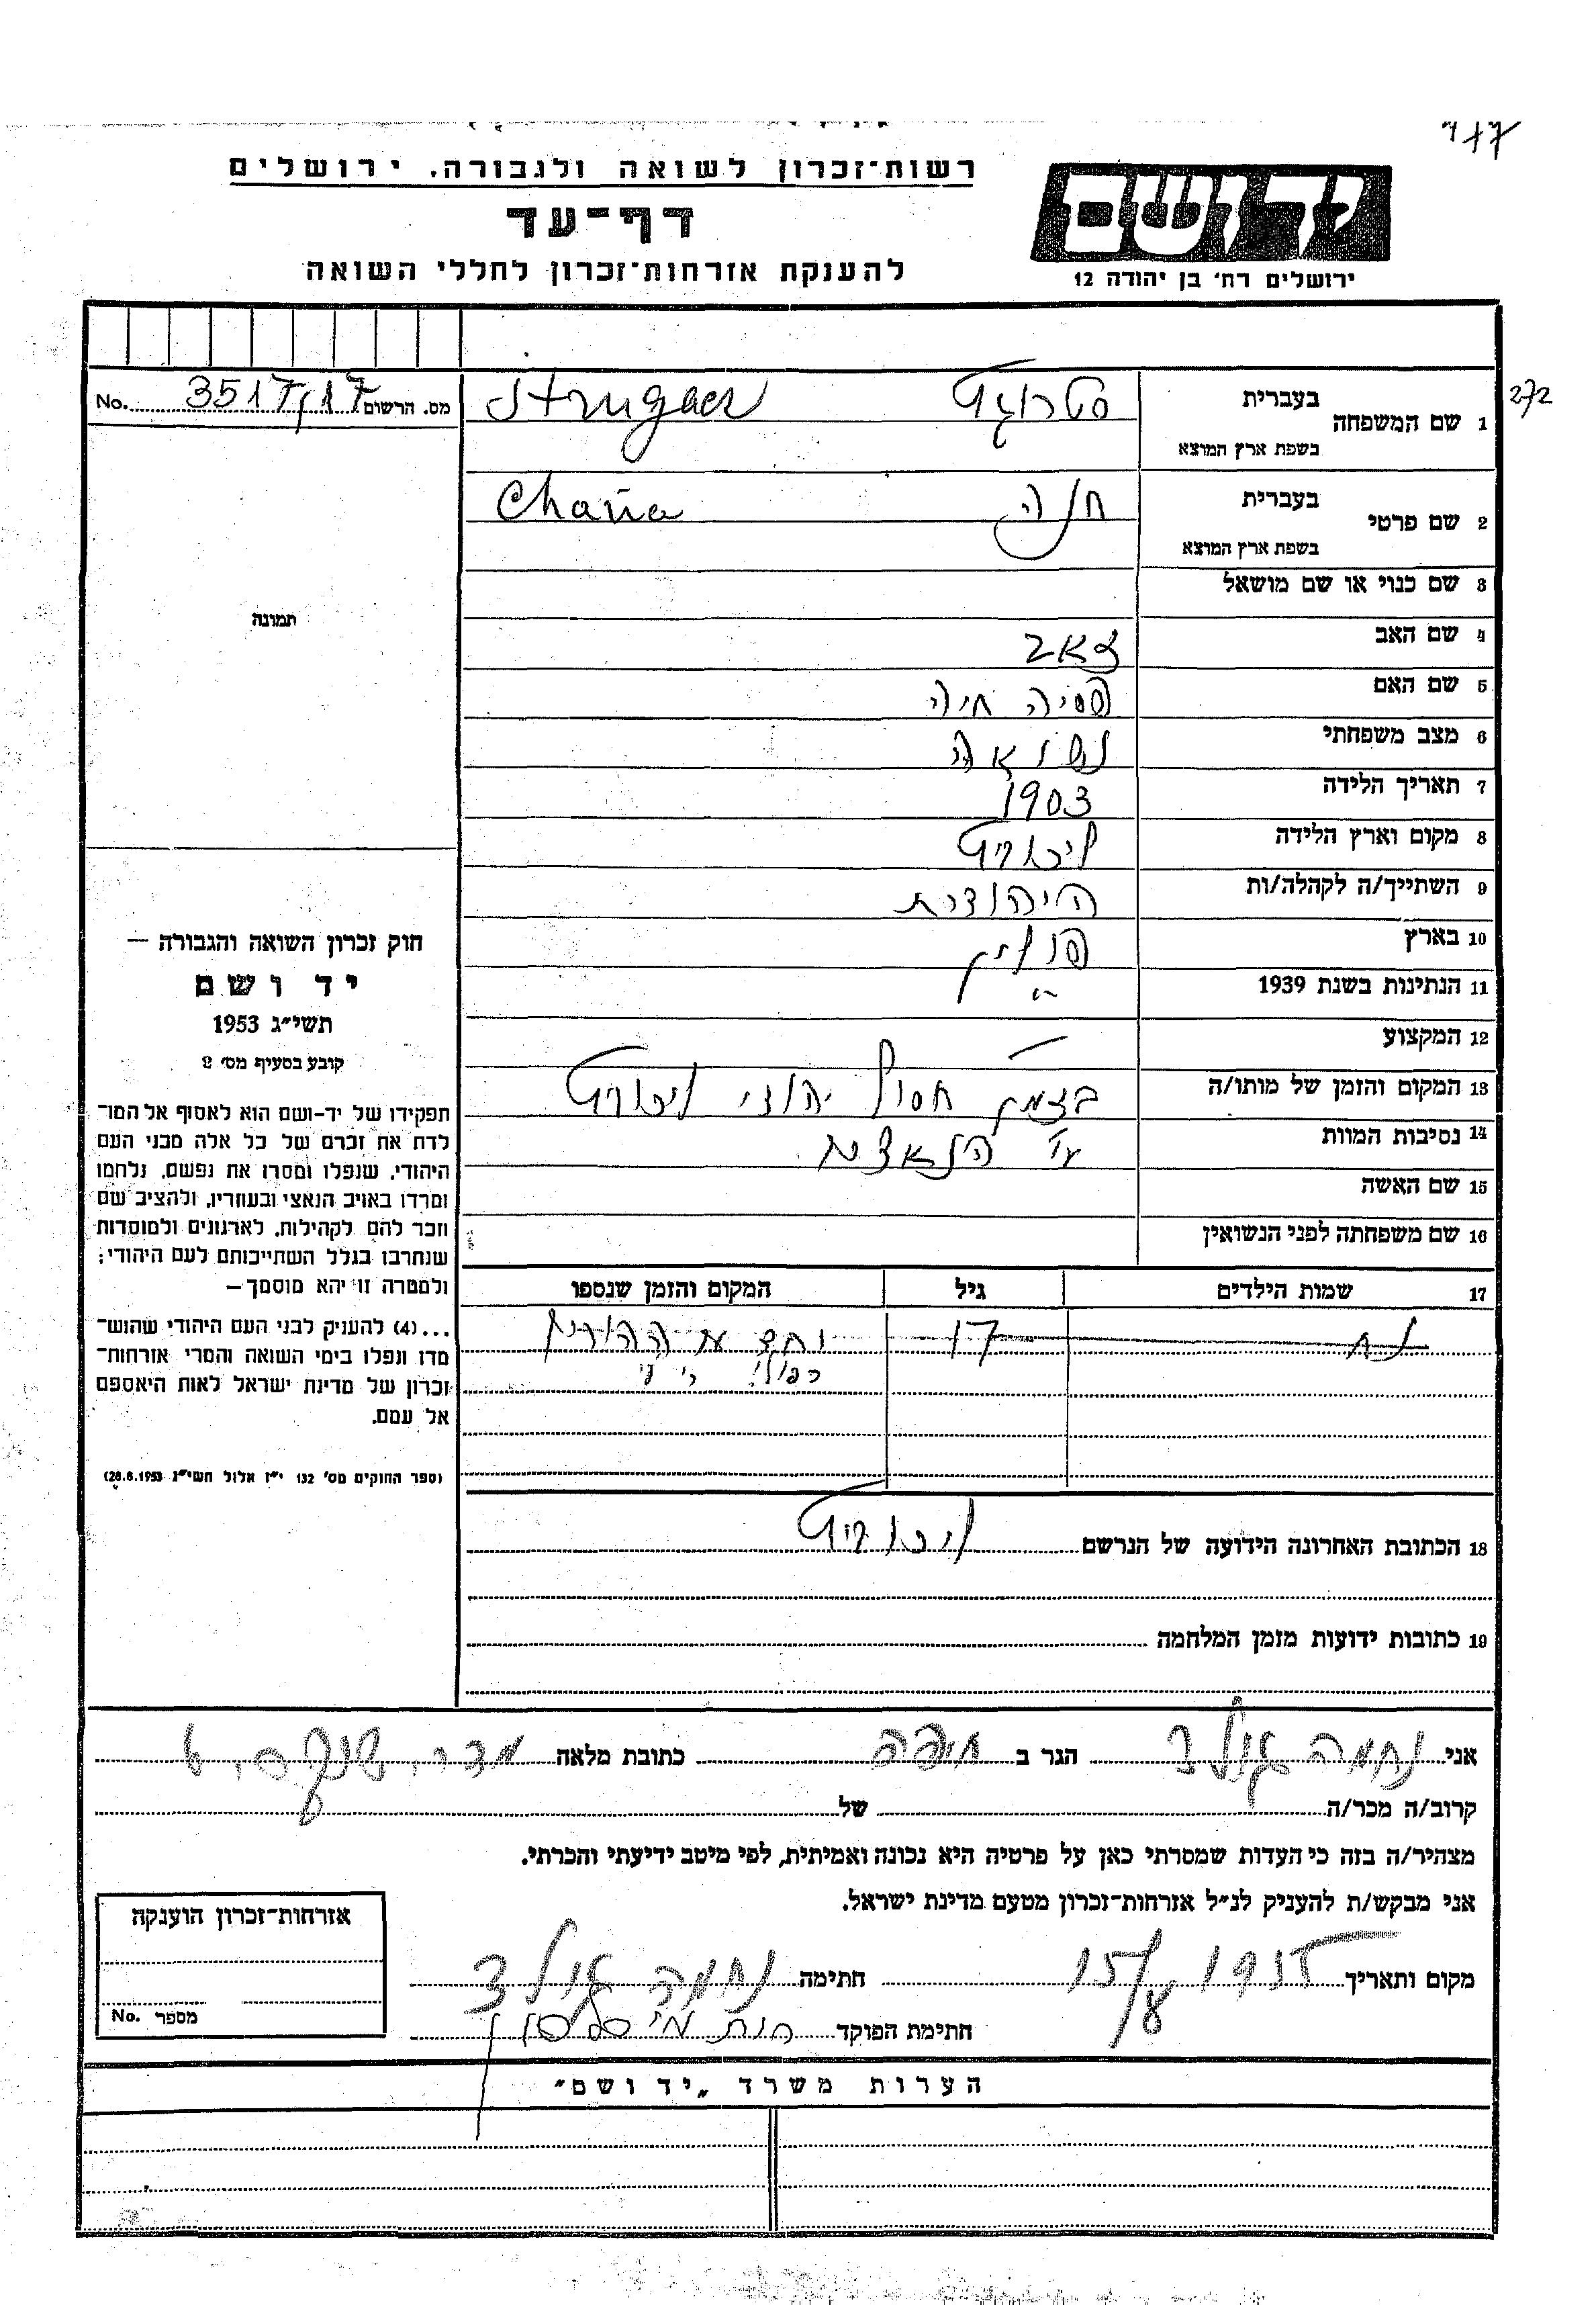 רשות־זכרון לשואה ולגבורה. ירושלים
דף־עד
להענקת אזרחות־זכרון לחללי השואה
ידושם
ירושלים רח׳ בן יהודה 12
272
מס. הרשום 3517/17 No.
1 שם המשפחה בעברית
בשפת ארץ המוצא
Strugacz
2 שם פרטי בעברית חנה
בשפת ארץ המוצא
Chana
3 שם כנוי או שם מושאל
4 שם האב זאב
5 שם האם פסיה חיה
6 מצב משפחתי נשואה
7 תאריך הלידה 1903
8 מקום וארץ הלידה
9 השתייך/ה לקהלה/ות היהודית
10 בארץ פולין
11 הנתינות בשנת 1939 -״-
12 המקצוע —
13 המקום והזמן של מותו/ה בזמן חסול יהודי
14 נסיבות המוות ע״י הנאצים
15 שם האשה
16 שם משפחתה לפני הנשואין
17 שמות הילדים גיל המקום והזמן שנספו
17 יחד עם ההורים
18 הכתובת האחרונה הידועה של הנרשם
19 כתובות ידועות מזמן המלחמה
תמונה
חוק זכרון השואה והגבורה —
יד ושם
תשי״ג 1953
קובע בסעיף מס׳ 2
תפקידו של יד-ושם הוא לאסוף אל המו־
לדת את זכרם של כל אלה מבני העם
היהודי, שנפלו ומסרו את נפשם, נלחמו
ומרדו באויב הנאצי ובעוזריו, ולהציב שם
וזכר להם לקהילות, לארגונים ולמוסדות
שנחרבו בגלל השתייכותם לעם היהודי;
ולמטרה זו יהא מוסמך —
...(4) להעניק לבני העם היהודי שהוש־
מדו ונפלו בימי השואה והמרי אזרחות־
זכרון של מדינת ישראל לאות היאספם
אל עמם.
(ספר החוקים מס׳ 132 י״ז אלול תשי״ג 28.8.1953)
אני נחמה גולד הגר ב חיפה כתובת מלאה
קרוב/ה מכר/ה של
מצהיר/ה בזה כי העדות שמסרתי כאן על פרטיה היא נכונה ואמיתית, לפי מיטב ידיעתי והכרתי.
אני מבקש/ת להעניק לנ״ל אזרחות־זכרון מטעם מדינת ישראל.
מקום ותאריך 1955 חתימה נחמה גולד
חתימת הפוקד
אזרחות־זכרון הוענקה
מספר No.
הערות משרד „יד ושם״